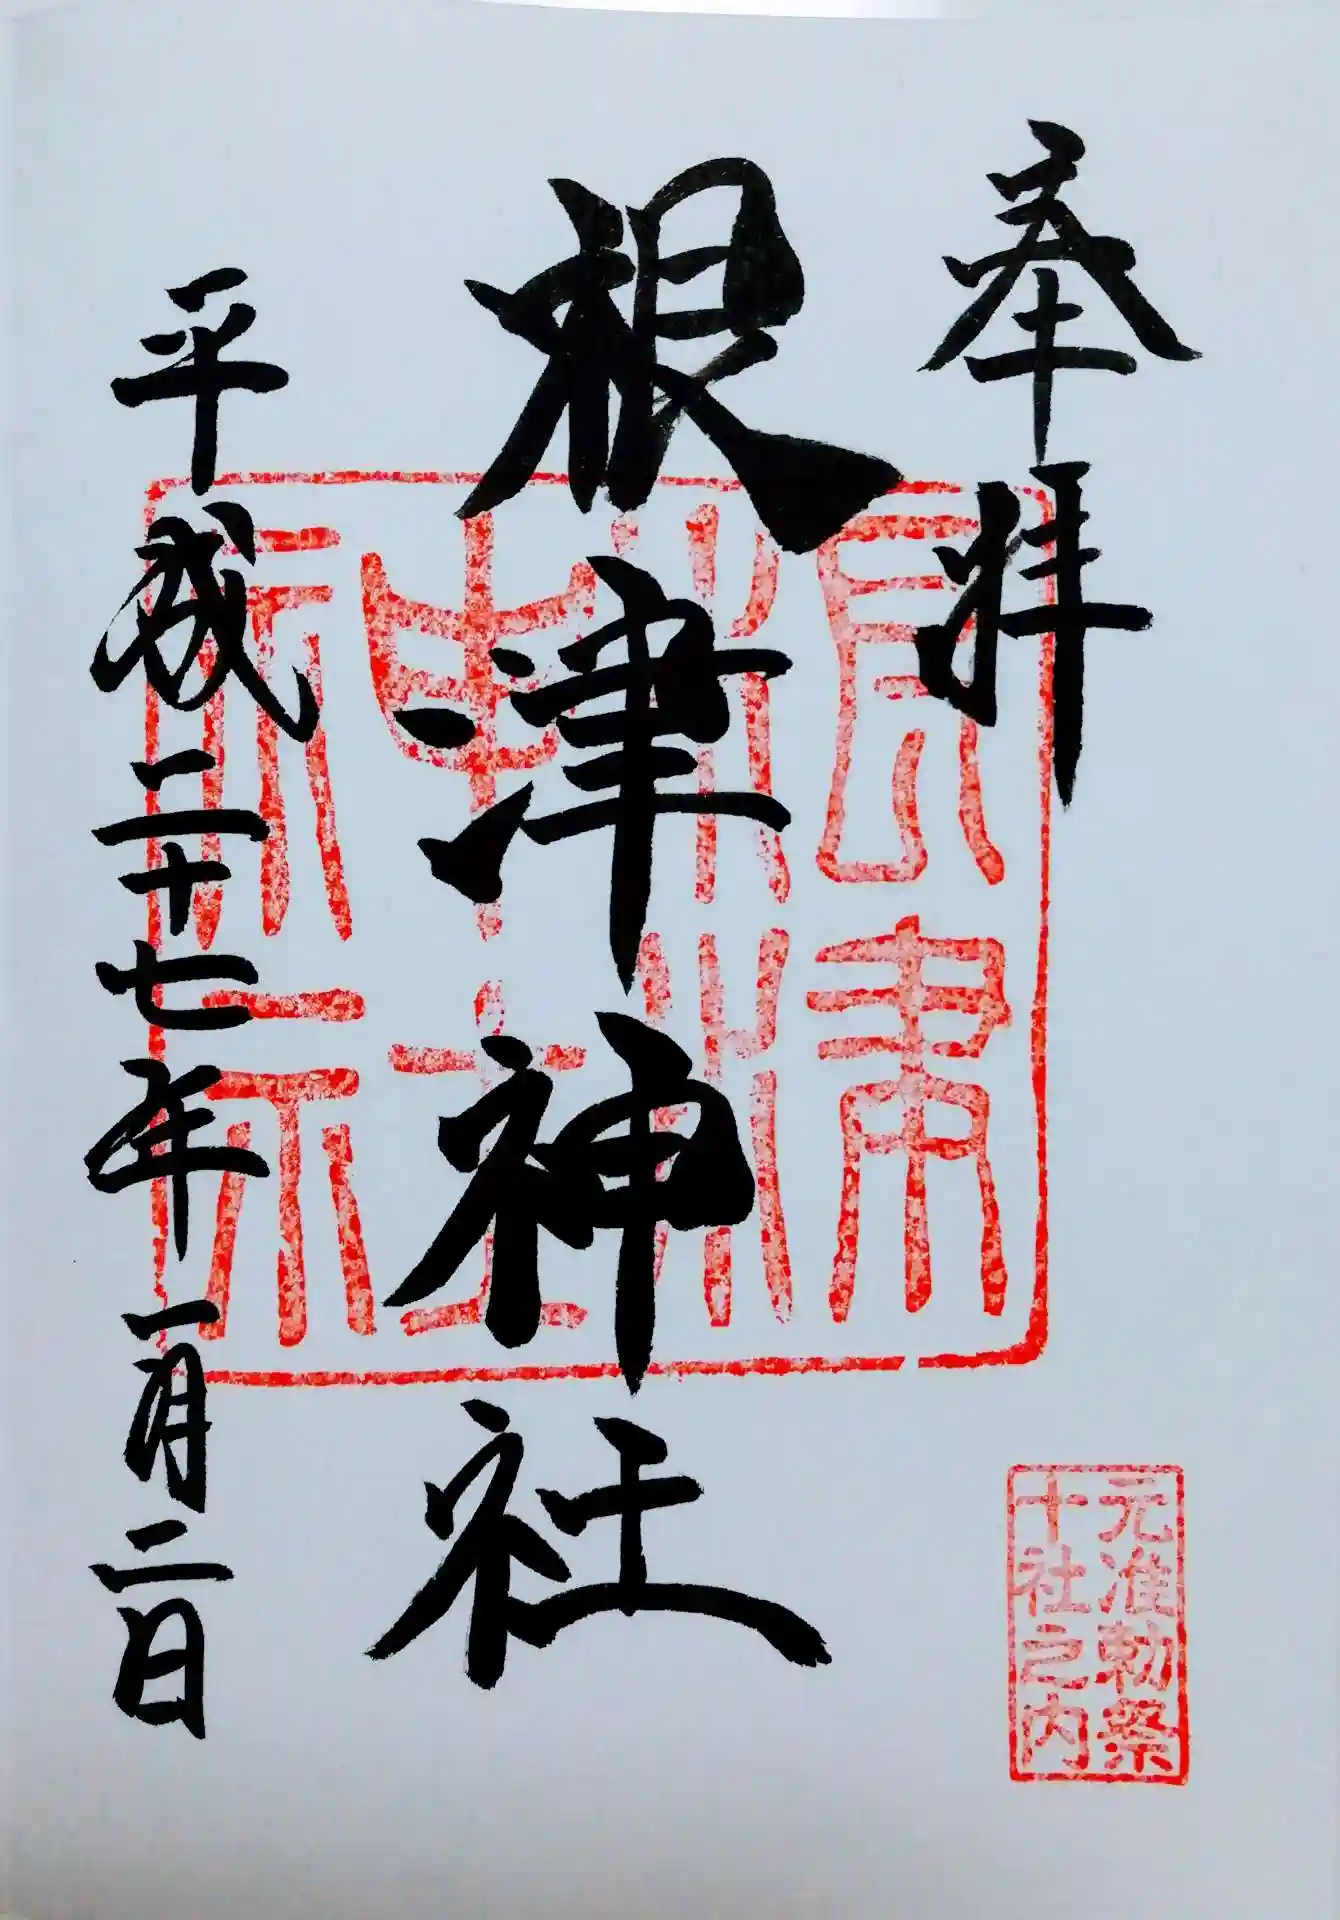 奉拝
元准勅祭
十社之内
根津神社
根津
神社
平成二十七年一月二日